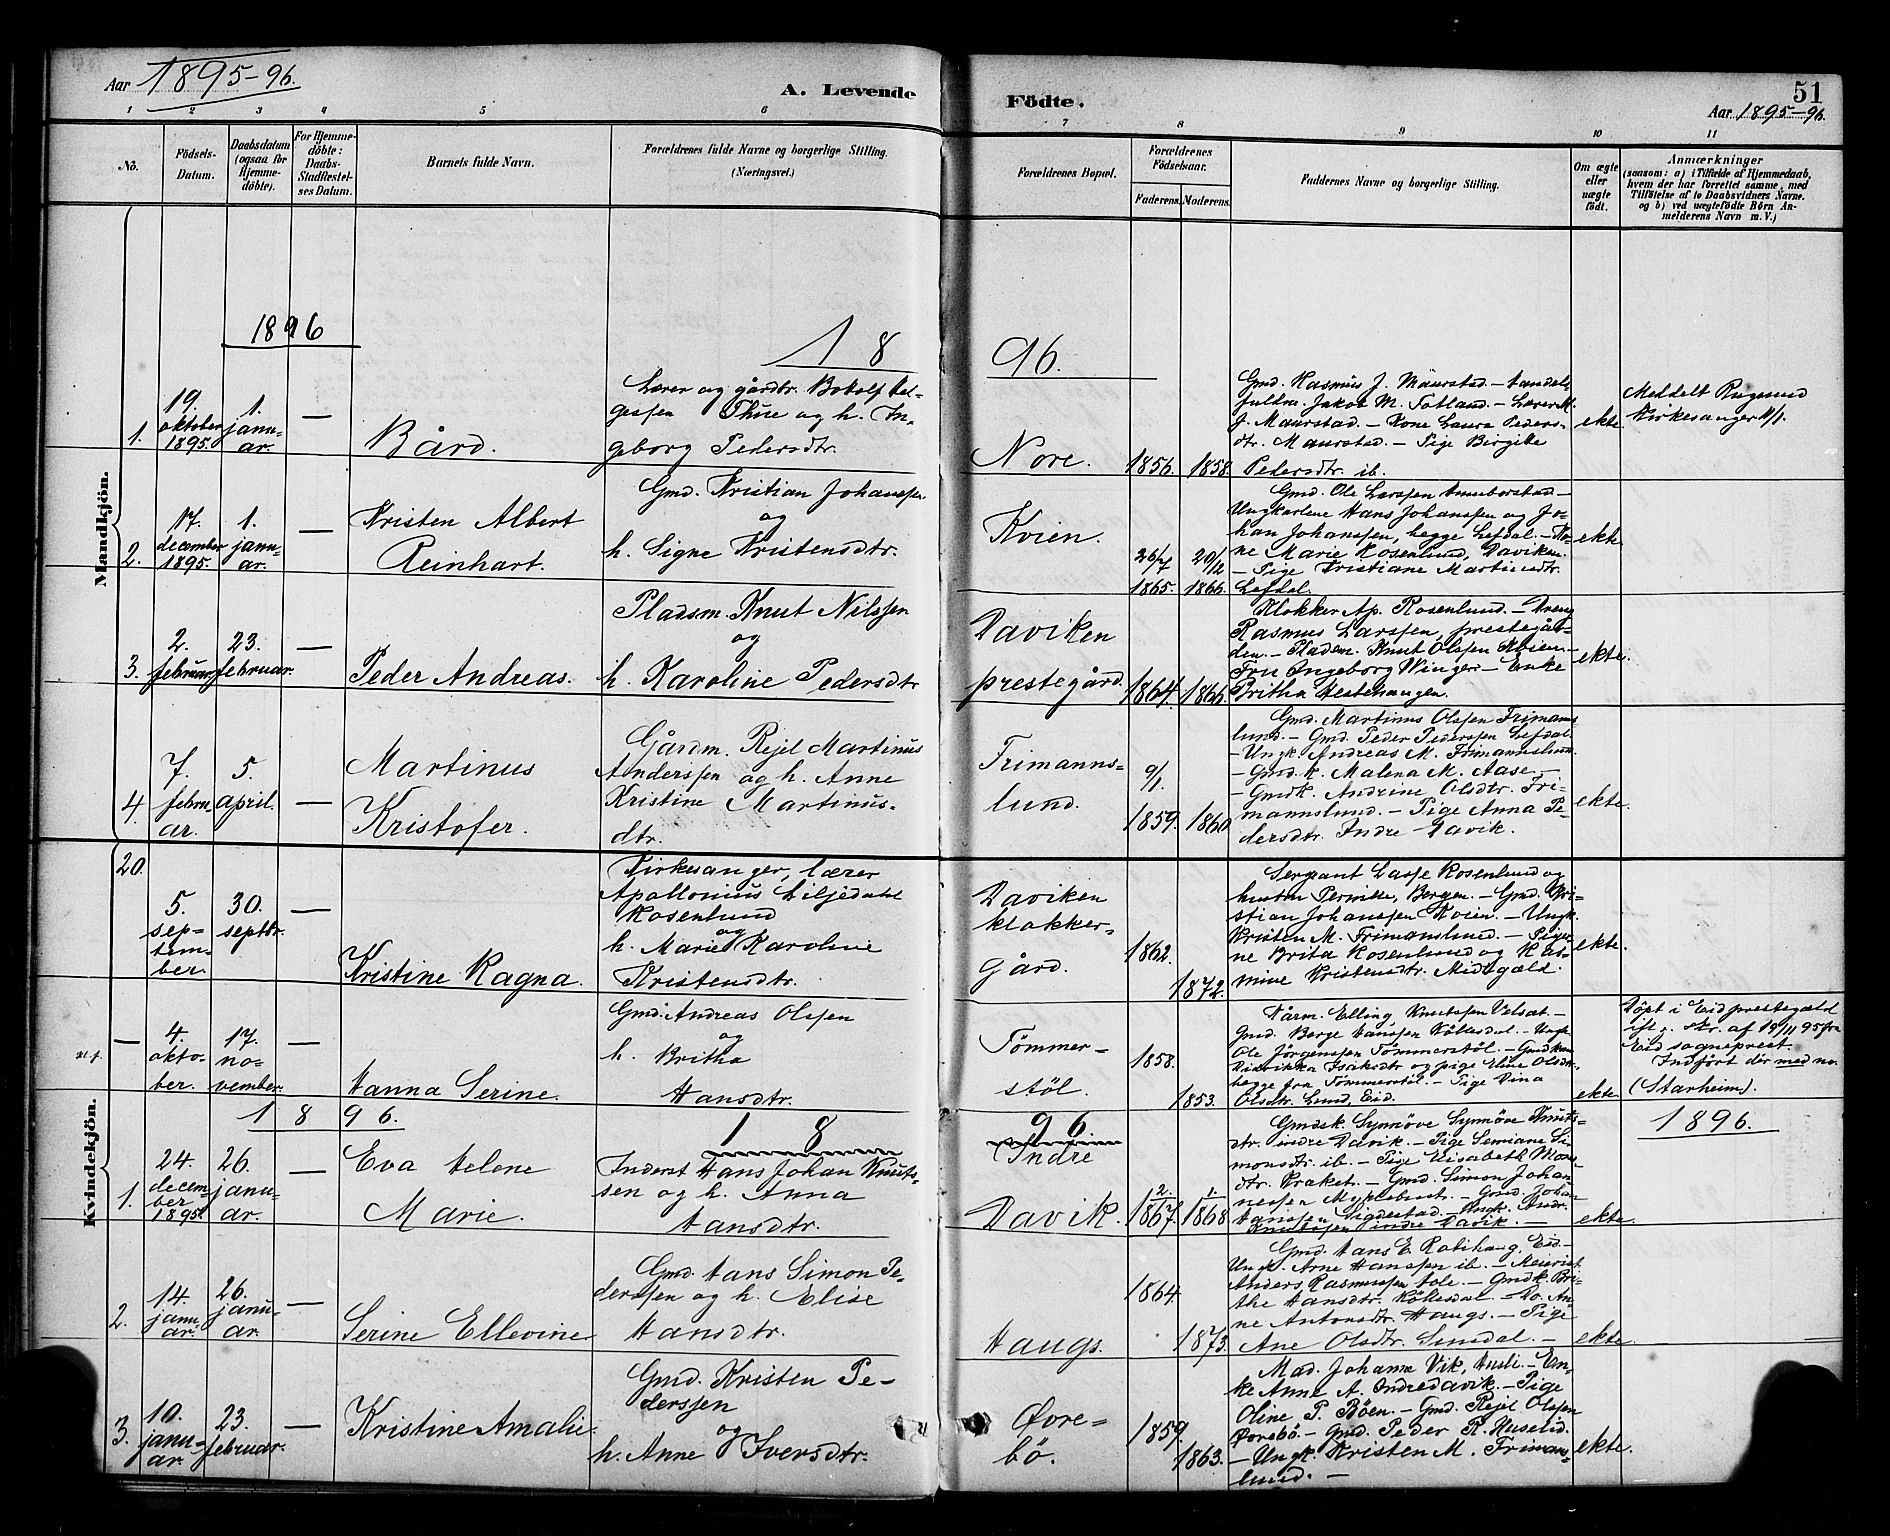 Aar 1895-96.
A. Levende
Födte.
51
Aar 1895-96.
1 2 3 4 5 6 7 8 9 10 11
No.
Födsels-
Datum.
Daabsdatum
(ogsaa for
Hjemme-
döbte).
For Hjemme-
döbte:
Daabs-
Stadfæstel-
ses Datum.
Barnets fulde Navn.
Forældrenes fulde Navne og borgerlige Stilling.
(Næringsvei.)
Forældrenes Bopæl.
Forældrenes
Födselsaar.
Faderens. Moderens.
Faddernes Navne og borgerlige Stilling.
Om ægte
eller
uægte
født.
Anmærkninger
(saasom: a) i Tilfælde af Hjemmedaab,
hvem der har forrettet samme, med
Tilföielse af to Daabsvidners Navne,
og b) ved uægtefödte Börn An-
melderens Navn m. V.)
Mandkjön.
1896
18
96.
1.
19.
oktober
1895.
1.
janu-
ar.
—
Bård.
Lærer og gårdbr. Botolf Hel-
gessen Thue og h. In-
geborg Pedersdtr.
Nore.
1856.
1858.
Gmd. Rasmus J. Maurstad. – Handels-
fuldm. Jakob M. Totland. – Lærer M.
J. Maurstad. – Kone Laura Peders-
dtr. Maurstad. – Pige Birgitte
Pedersdtr. ib.
ekte.
Meddelt
Kirkesanger
2.
17.
december
1895.
1.
janu-
ar.
—
Kristen Albert
Reinhart.
Gmd. Kristian Johanssen
og
h. Signe Kristensdtr.
Kvien.
26/7
1865.
20/2
1866.
Gmd. Ole Larssen
Ungkarlene Hans Johanssen og Jo-
han Johanssen, begge Lefdal. – Ko-
ne Marie Rosenlund, Daviken.
– Pige Kristiane Martinsdtr.
Lefdal.
ekte.
3.
2.
februar
23.
februar.
—
Peder Andreas.
Pladsm. Knut Nilssen
og
h. Karoline Pedersdtr
Daviken
prestegård.
1864.
1866.
Klokker Ap. Rosenlund. – Dreng
Rasmus Larssen, prestegår-
den. – Pladsm. Knut Olssen Kvien. –
Fru Ingeborg Winger – Enke
Britha Hestehaugen.
ekte.
4.
7.
febru-
ar.
5.
april.
—
Martinus
Kristofer.
Gårdm. Rejel Martinus
Anderssen og h. Anne
Kristine Martinus-
dtr.
Frimanns-
lund.
9/1
1859.
1860
Gmd. Martinus Olssen Frimans-
lund. – Gmd. Peder Pederssen Lefdal.
– Ungk. Andreas M. Frimannslund.
– Gmd.k. Malena M. Aase. –
– Gmdk. Andrine Olsdtr. Fri-
mannslund. – Pige Anna Pe-
dersdtr. Indre Davik.
ekte.
Kvindekjön.
20.
5.
sep-
tem-
ber.
30.
septbr.
—
Kristine Ragna.
Kirkesanger, lærer
Apollonius Liljedahl
Rosenlund
og
h. Marie Karoline
Kristensdtr.
Daviken
klokker-
gård.
1862.
1872.
Sergeant Lasse Rosenlund og
hustru Pernille, Bergen. – Gmd. Kri-
stian Johanssen Kvien. – Ungk.
Kristen M. Frimanslund. – Piger-
ne Brita Rosenlund og Kar-
mine Kristensdtr. Midtgæld.
ekte.
—
4.
okto-
ber.
17.
no-
vember.
—
Hanna Serine.
Gmd. Andreas Olssen
og
h. Britha
Hansdtr.
Tømmer-
støl.
1858.
1853.
Kårm. Elling Knutssen
Gmd. Børge Hanssen Kölesdal. – Ungk.
Ole Jørgenssen Tømmerstöl. – Gmdkon
og pige Eline Olsdtr.,
begge fra Tömmerstöl. – Pige Dina
Olsdtr. Lund, Eid.
ekte
Döpt i Eid prestegæld
ifl. skr. af 18/11 95 fra
Eid sogneprest.
Indfört dér med no
(Starheim).
1896.
18
96
1896.
1.
24.
decem-
ber
1895.
26.
janu-
ar.
—
Eva Helene
Marie.
Inderst Hans Johan Knuts-
sen og h. Anna
Hansdtr.
Indre
Davik.
2.
1867.
1.
1868
Gmdsk. Synnöve Synnöve Knuts-
dtr. indre Davik. – Pige Semiane Si-
monsdtr. ib. – Pige Elisabeth Mons-
dtr. Kraket. – Gmd. Simon Johan-
nessen Myklebust. – Gmd. Johan
Hanssen Sigdestad. – Ungk. Andr.
Knutssen indre Davik. –
ekte.
2.
14.
janu-
ar.
26.
janu-
ar.
—
Serine Ellevine
Gmd. Hans Simon Pe-
derssen og h. Elise
Hansdtr.
Haugs.
1864.
1873.
Gmd. Hans E. Rotihaug, Eid. –
Ungk. Arne Hanssen ib. – Meierist
Anders Rasmussen Hole. – Gmdk. Bri-
the Hansdtr. Kölesdal. – Do. An-
ne Antonsdtr. Haugs. – Pige
Ane Olsdtr. Sundal. –
ekte
3.
10.
janu-
ar.
23.
februar.
—
Kristine Amalie.
Gmd. Kristen Pe-
derssen
og
h. Anne Iversdtr.
Øvre-
bö.
1859.
1863.
Mad. Johanna Vik, Husli. – En-
ke Anne A. Indredavik. – Pige
Oline P. Böen. – Gmd. Rejel Olssen
Øvrebö. – Gmd. Peder R. Huselid.
– Ungk. Kristen M. Friman-
lund. –
ekte.